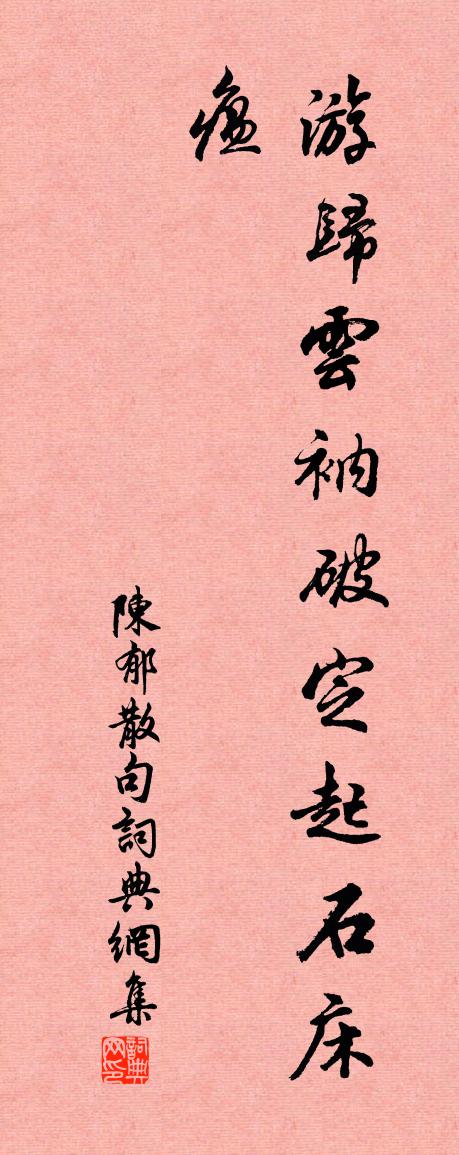 游歸雲衲破定起石床
陳郁散句詞典網集
詞典
网印